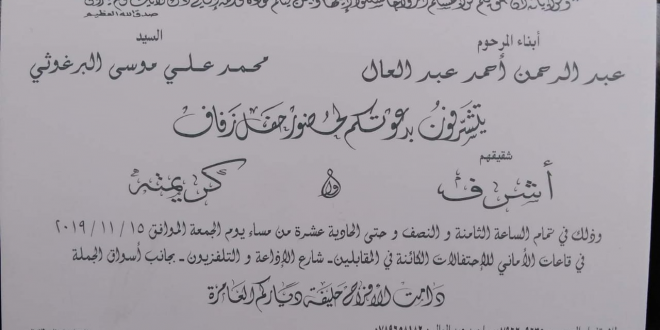 صدق الله العظيم
أبناء المرحوم
السيد
عبد الرحمن أحمد عبد العال
محمد علي موسى البرغوثي
يتشرفون بدعوتكم لحضور حفل زفاف
شقيقهم
أشرف و كريمته
وذلك في تمام الساعة الثامنة و النصف و حتى الحادية عشرة من مساء يوم الجمعة الموافق ٢٠١٩/١١/١٥
في قاعات الأماني للإحتفالات الكائنة في المقابلين - شارع الإذاعة و التلفزيون - بجانب أسواق الجملة
دامت الأفراح حليفة دياركم العامرة